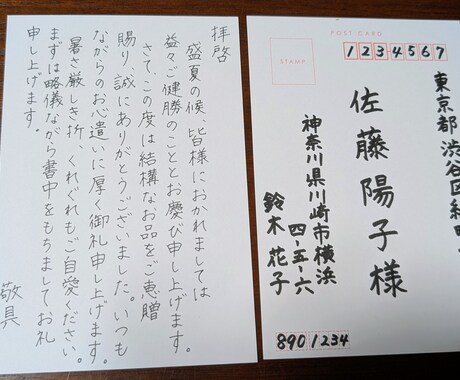 拝啓
盛夏の候、皆様におかれましては
益々ご健勝のこととお慶び申し上げます。
さて、この度は結構なお品をご恵贈
賜り、誠にありがとうございました。いつも
ながらのお心遣いに厚く御礼申し上げます。
暑さ厳しき折、くれぐれもご自愛ください。
まずは略儀ながら書中をもちましてお礼
申し上げます。
敬具
POST CARD
STAMP
1234567
東京都渋谷区
佐藤陽子様
神奈川県川崎市横浜
四-五-六
鈴木花子
8901234